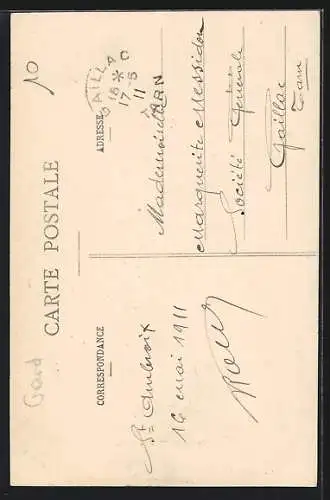 10
Gard
CARTE POSTALE
CORRESPONDANCE
ADRESSE
GAILLAC
18 * 0
17 - 5
11
TARN
St Ambroix
16 mai 1911
Mademoiselle
Marguerite Messidon
Société Générale
Gaillac
Tarn